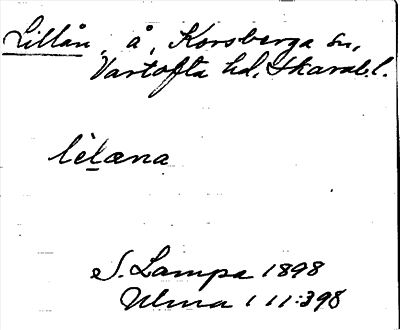 Lillån, å, Korsberga sn,
Vartofta hd, Skarab.l.
lèlæna
S. Lampa 1898
Ulma 111:398